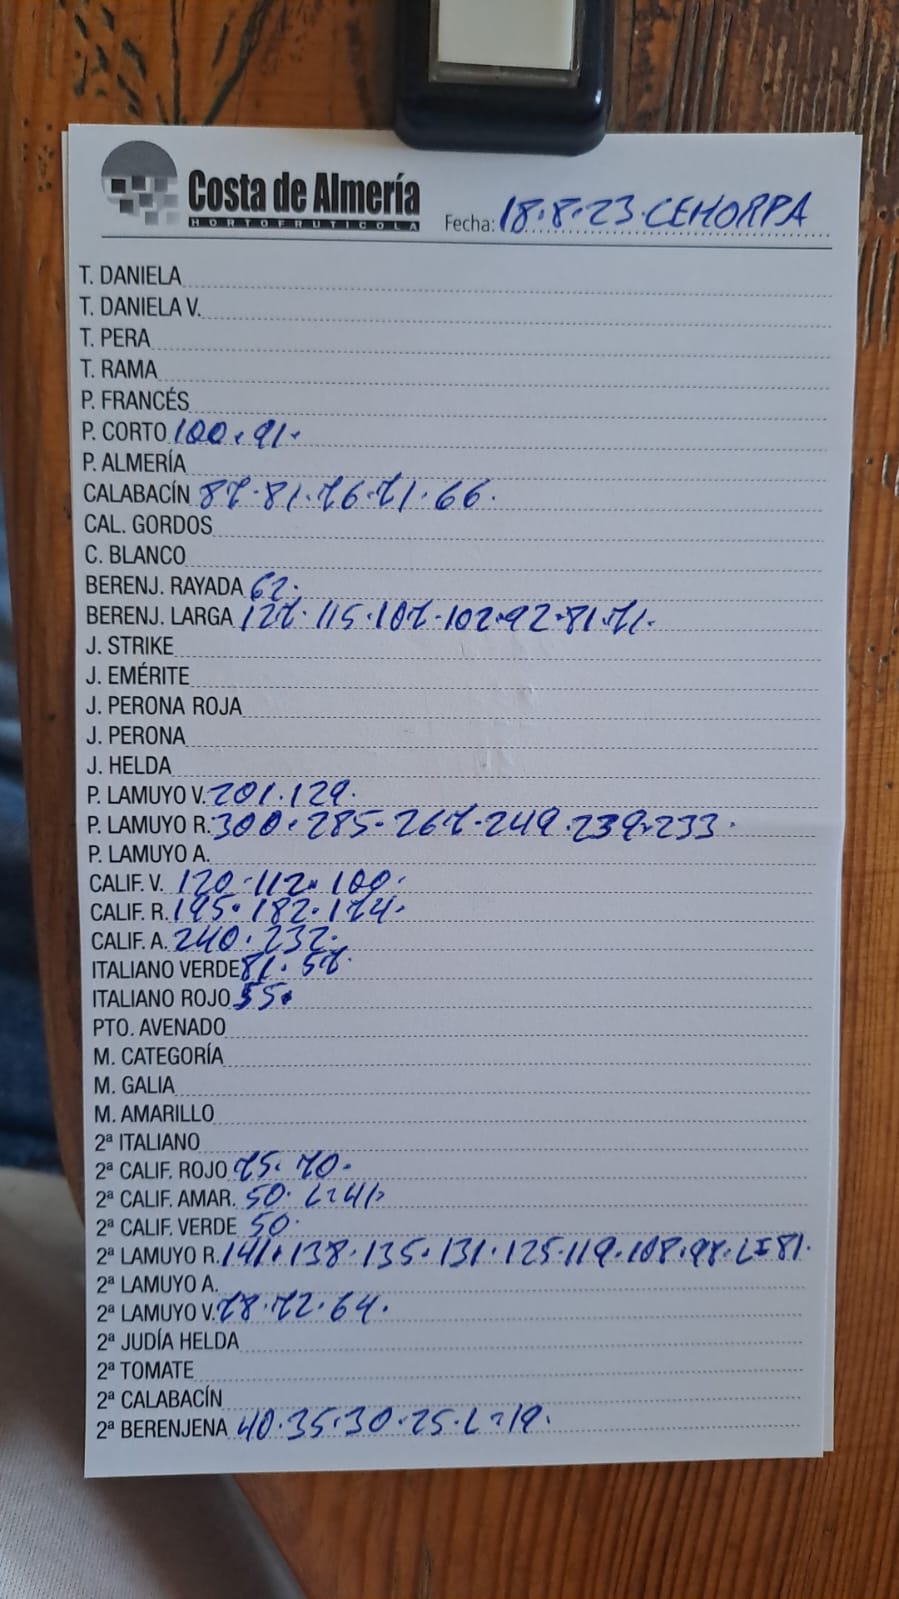 Costa de Almería
HORTOFRUTICOLA
Fecha: 18.8.23.CEHORPA
T. DANIELA
T. DANIELA V.
T. PERA
T. RAMA
P. FRANCÉS
P. CORTO 100.91.
P. ALMERÍA
CALABACÍN 87.81.76.71.66.
CAL. GORDOS
C. BLANCO
BERENJ. RAYADA 62.
BERENJ. LARGA 127.115.107.102.92.81.71.
J. STRIKE
J. EMÉRITE
J. PERONA ROJA
J. PERONA
J. HELDA
P. LAMUYO V. 201.129.
P. LAMUYO R. 300.285.267.249.239.233.
P. LAMUYO A.
CALIF. V. 120.112.100.
CALIF. R. 195.182.174.
CALIF. A. 240.232.
ITALIANO VERDE 81.57.
ITALIANO ROJO 55.
PTO. AVENADO
M. CATEGORÍA
M. GALIA
M. AMARILLO
2ª ITALIANO
2ª CALIF. ROJO 75.70.
2ª CALIF. AMAR. 50. L=41.
2ª CALIF. VERDE 50.
2ª LAMUYO R. 141.138.135.131.125.119.108.98.L=81.
2ª LAMUYO A.
2ª LAMUYO V. 78.72.64.
2ª JUDÍA HELDA
2ª TOMATE
2ª CALABACÍN
2ª BERENJENA 40.35.30.25.L=19.